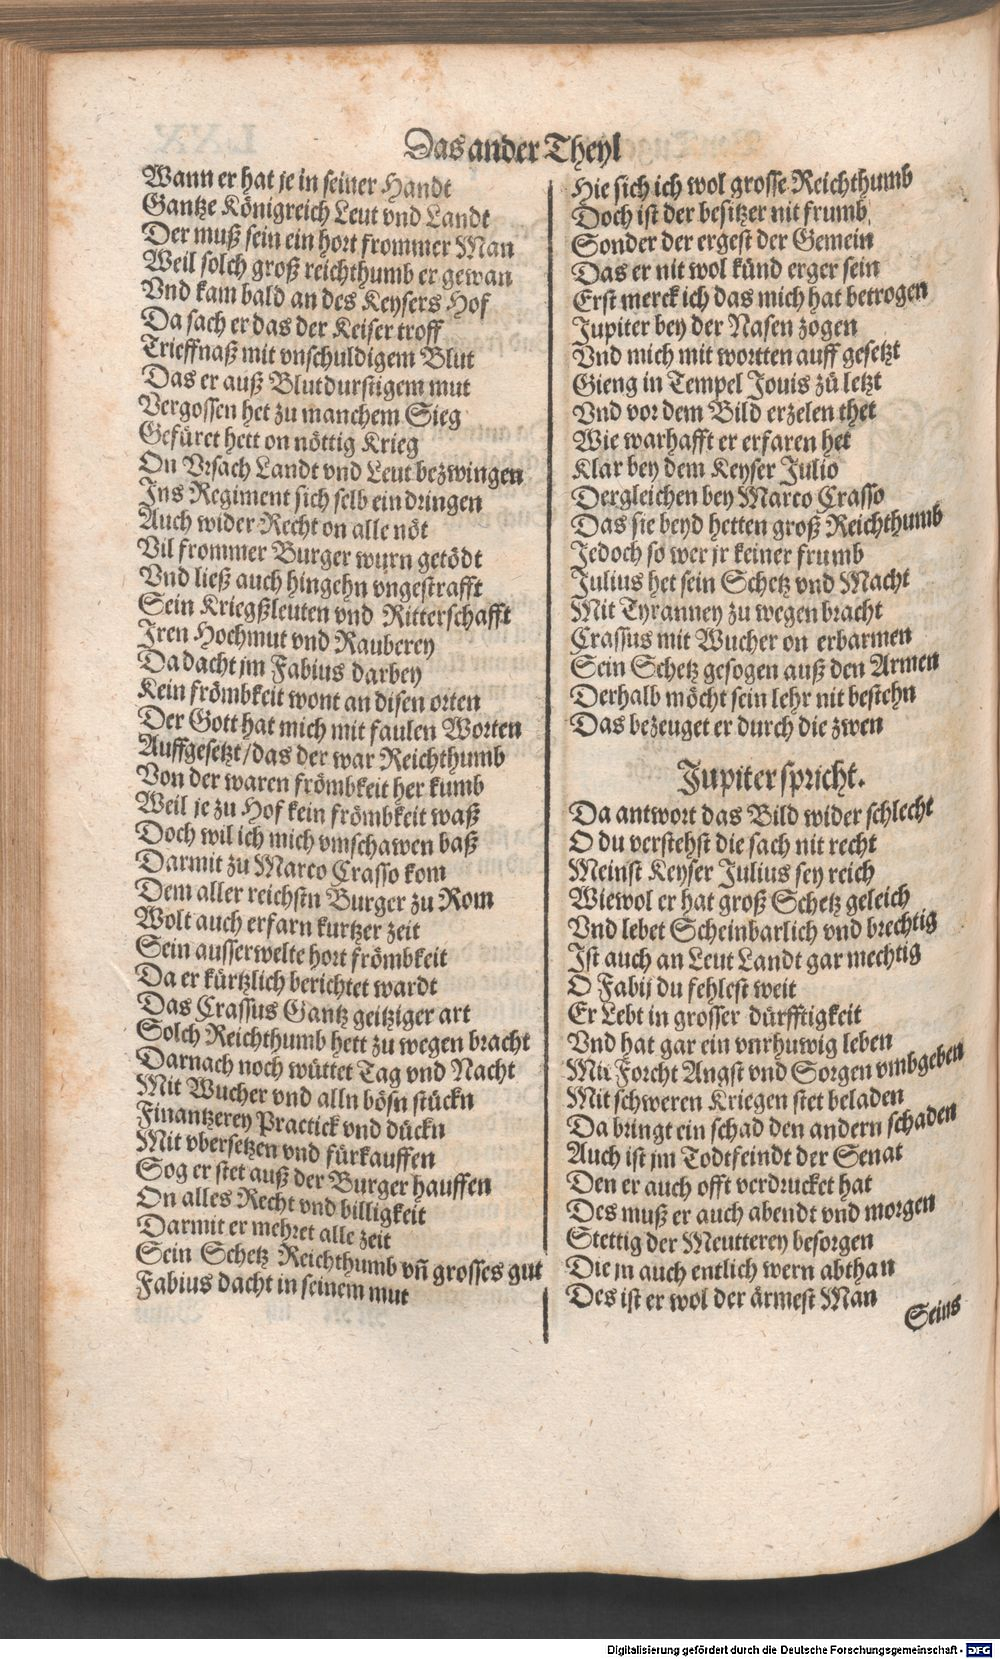 Das ander Theyl
Wann er hat je in seiner Handt
Gantze Königreich Leut vnd Landt
Der muß sein ein hort frommer Man
Weil solch groß reichthumb er gewan
Vnd kam bald an des Keysers Hof
Da sach er das der Keiser troff
Trieffnaß mit vnschuldigem Blut
Das er auß Blutdurstigem mut
Vergossen het zu manchem Sieg
Gefüret hett on nöttig Krieg
On Vrsach Landt vnd Leut bezwingen
Ins Regiment sich selb eindringen
Auch wider Recht on alle nöt
Vil frommer Burger wurn getödt
Vnd ließ auch hingehn vngestrafft
Sein Kriegßleuten vnd Ritterschafft
Iren Hochmut vnd Rauberey
Da dacht jm Fabius darbey
Kein frömbkeit wont an disen orten
Der Gott hat mich mit faulen Worten
Auffgesetzt/das der war Reichthumb
Von der waren frömbkeit her kumb
Weil je zu Hof kein frömbkeit waß
Doch wil ich mich vmschawen baß
Darmit zu Marco Crasso kom
Dem aller reichstn Burger zu Rom
Wolt auch erfarn kurtzer zeit
Sein ausserwelte hort frömbkeit
Da er kürtzlich berichtet wardt
Das Crassus Gantz geitziger art
Solch Reichthumb hett zu wegen bracht
Darnach noch wüttet Tag vnd Nacht
Mit Wucher vnd alln bösn stückn
Finantzerey Practick vnd dückn
Mit vbersetzen vnd fürkauffen
Sog er stet auß der Burger hauffen
On alles Recht vnd billigkeit
Darmit er mehret alle zeit
Sein Schetz Reichthumb vñ grosses gut
Fabius dacht in seinem mut
Hie sich ich wol grosse Reichthumb
Doch ist der besitzer nit frumb
Sonder der ergest der Gemein
Das er nit wol künd erger sein
Erst merck ich das mich hat betrogen
Jupiter bey der Nasen zogen
Vnd mich mit wortten auff gesetzt
Gieng in Tempel Jouis zů letzt
Vnd vor dem Bild erzelen thet
Wie warhafft er erfaren het
Klar bey dem Keyser Julio
Dergleichen bey Marco Crasso
Das sie beyd hetten groß Reichthumb
Jedoch so wer jr keiner frumb
Julius het sein Schetz vnd Macht
Mit Tyranney zu wegen bracht
Crassus mit Wucher on erbarmen
Sein Schetz gesogen auß den Armen
Derhalb möcht sein lehr nit bestehn
Das bezeuget er durch die zwen
Jupiter spricht.
Da antwort das Bild wider schlecht
O du verstehst die sach nit recht
Meinst Keyser Julius sey reich
Wiewol er hat groß Schetz geleich
Vnd lebet Scheinbarlich vnd brechtig
Ist auch an Leut Landt gar mechtig
O Fabij du fehlest weit
Er Lebt in grosser dürfftigkeit
Vnd hat gar ein vnrhuwig leben
Mit Forcht Angst vnd Sorgen vmbgeben
Mit schweren Kriegen stet beladen
Da bringt ein schad den andern schaden
Auch ist jm Todtfeindt der Senat
Den er auch offt verdrucket hat
Des muß er auch abendt vnd morgen
Stettig der Meutterey besorgen
Die jn auch entlich wern abthan
Des ist er wol der ärmest Man
Seins
Digitalisierung gefördert durch die Deutsche Forschungsgemeinschaft - DFG